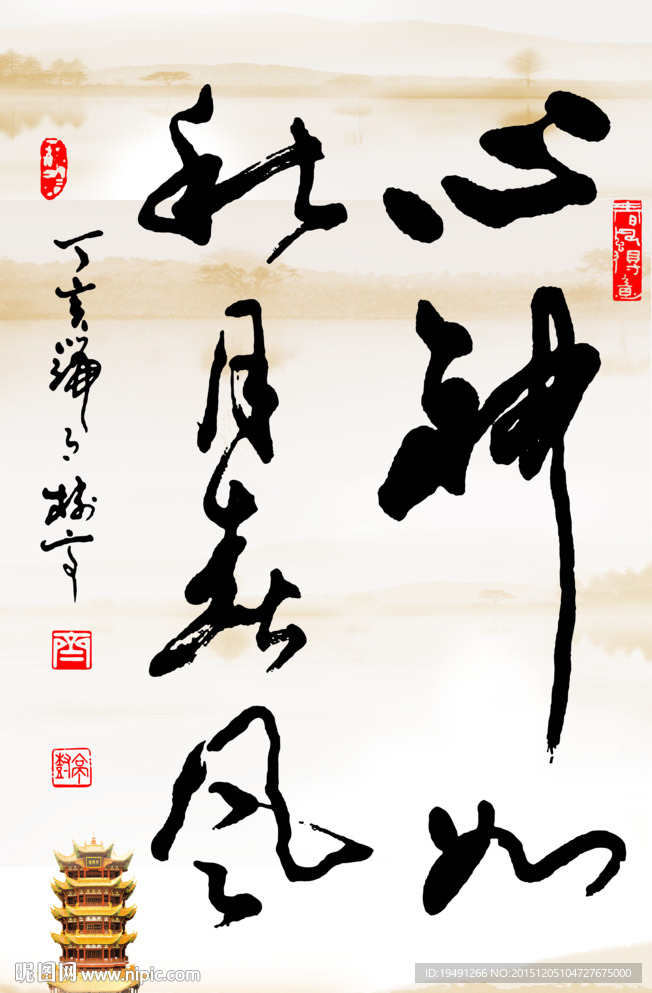 心神如
秋月春风
丁亥
春風得意
昵图网 www.nipic.com
ID:19491266 NO:20151205104727675000